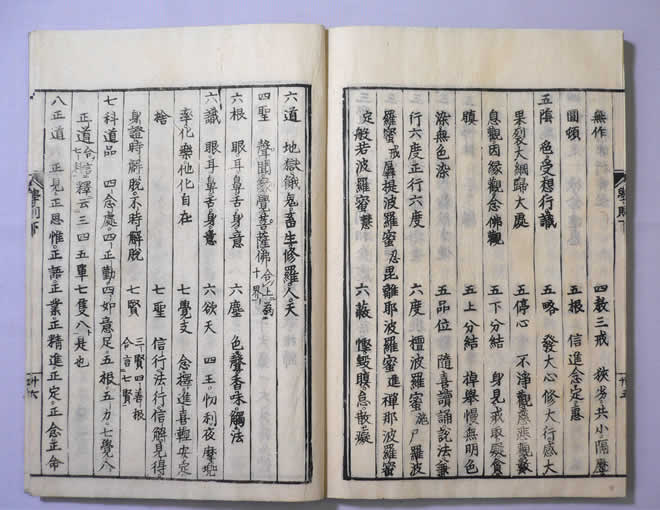 無作　四教三戒　狹劣共小隔歷
圓頓　五根　信進念定慧
五陰　色受想行識　五略　發大心修大行感大
果裂大網歸大處　五停心　不淨觀慈悲觀數
息觀因緣觀念佛觀　五下分結　身見戒取疑貪
瞋　五上分結　掉舉慢無明色
染無色染　五品位　隨喜讀誦說法兼
行六度正行六度　六度　檀波羅蜜施尸羅波
羅蜜戒羼提波羅蜜忍毘離耶波羅蜜進禪那波羅蜜
定般若波羅蜜慧　六蔽　慳毀瞋怠散癡
六道　地獄餓鬼畜生修羅人天
四聖　聲聞緣覺菩薩佛合上為十界
六根　眼耳鼻舌身意　六塵　色聲香味觸法
六識　眼耳鼻舌身意　六欲天　四王忉利夜摩兜
率化樂他化自在　七覺支　念擇進喜輕安定
捨　七聖　信行法行信解見得
身證時解脫不時解脫　七賢　三賢四善根合言七賢
七科道品　四念處四正勤四如意足五根五力七覺八
正道　釋云三四五單七隻八是也
八正道　正見正思惟正語正業正精進正定正念正命